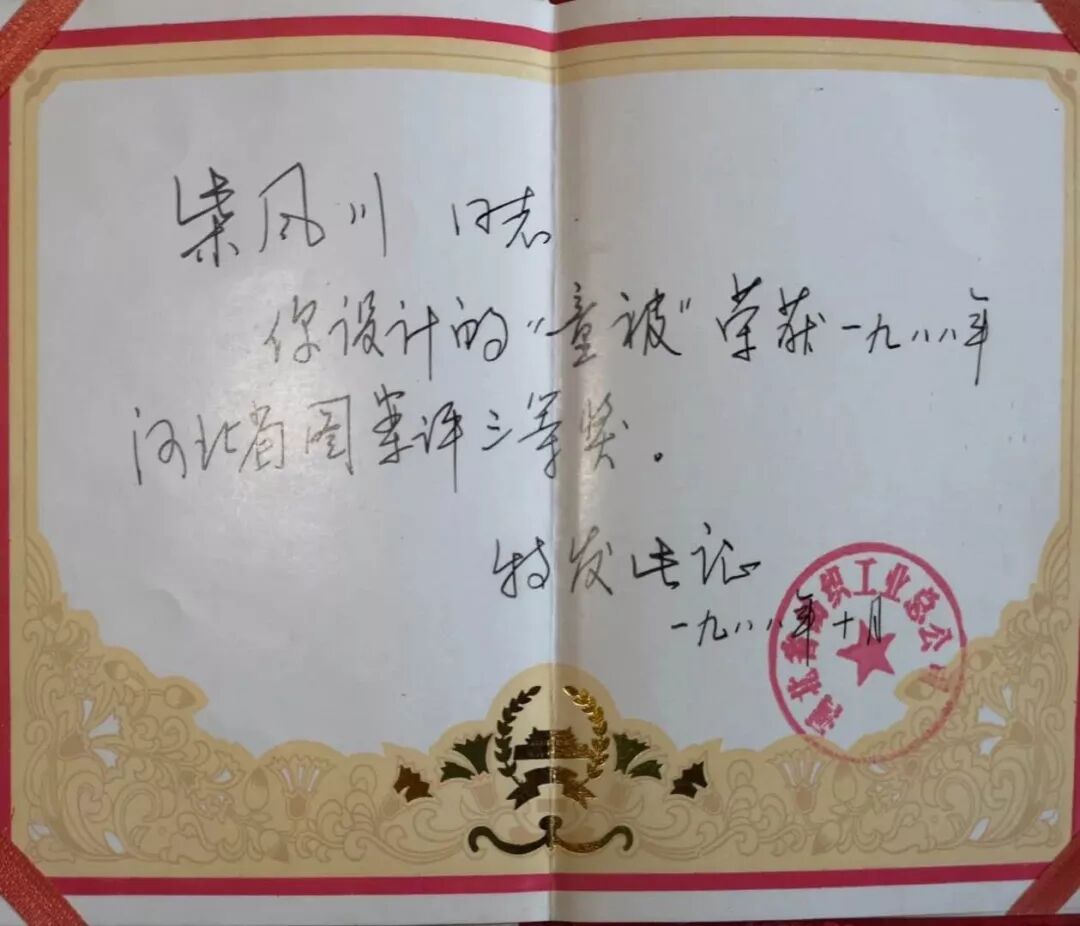 柴风川 同志
你设计的“童被”荣获一九八八年
河北省图案评三等奖.
特发此证
一九八八年十月
河北省纺织工业总公司